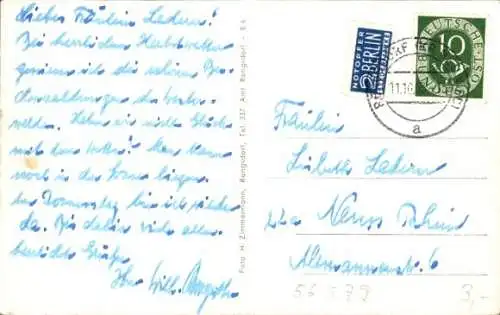 Liebes Fräulein Ledern!
Bei herrlichem Herbstwetter
genieße ich die schönen
Wanderungen des Wester-
waldes. Haben wir viel Glück
mit dem Wetter! Man kann
noch in der Sonne liegen.
Am Donnerstag bin ich wieder
da. Bis dahin viele aller-
herzlichste Grüße
Ihr Willi
Foto H. Zimmermann, Rengsdorf, Tel 337 Amt Rengsdorf
NOTOPFER
2 BERLIN
STEUERMARKE
DEUTSCHE POST
10
11.10
a
Fräulein
Lisbeth Ledern
22a Neuss Rhein
Alemannenstr. 6
56 579
3,-